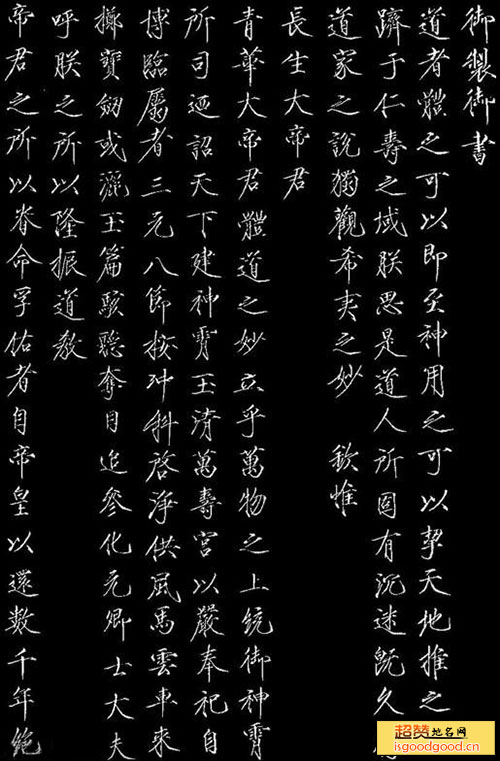 御製御書
道者體之可以即至神用之可以挈天地推之
躋于仁壽之域朕思是道人所固有沉迷既久
道家之說獨觀希夷之妙 欽惟
長生大帝君
青華大帝君體道之妙立乎萬物之上統御神霄
所司迺詔天下建神霄玉清萬壽宮以嚴奉祀自
博臨屬者三元八節按沖科啓淨供風馬雲車來
擲寶劍或灑玉篇駭聽奪目追參化元卿士大夫
呼朕之所以隆振道教
帝君之所以眷命孚佑者自帝皇以還數千年絶
超赞地名网
isgoodgood.cn